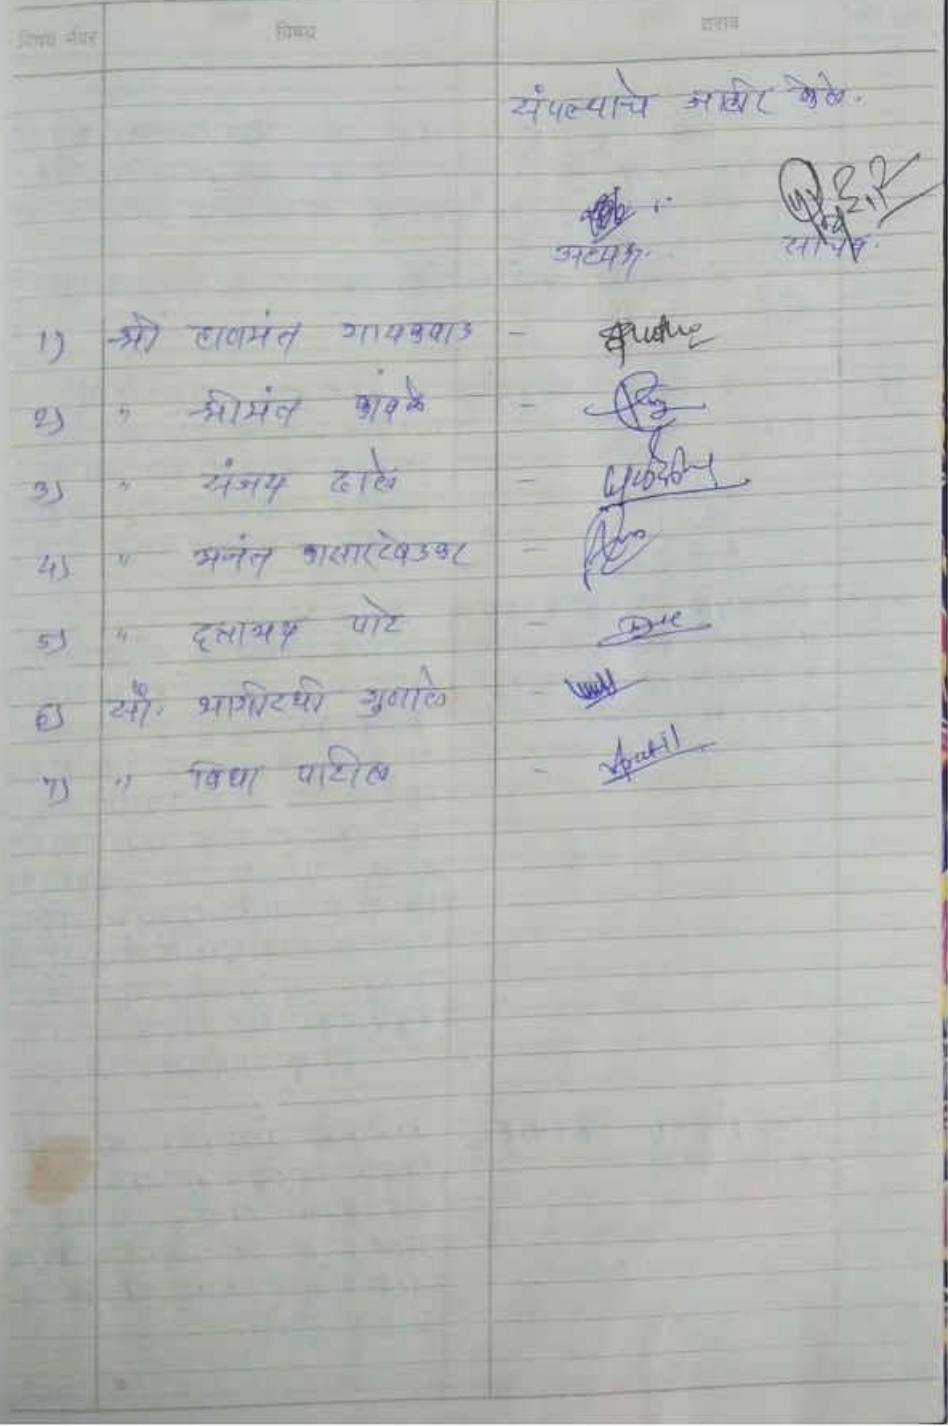 विषय नंबर विषय ठराव
संपल्याचे जाहीर केले.
अध्यक्ष. सचिव.
1) श्री हणमंत गायकवाड -
2) " श्रीमंत कांबळे -
3) " संजय ढाले -
4) " अनंत कासारखेडकर -
5) " दत्तात्रय पोटे -
6) सौ. भागीरथी गुणाले -
7) " विद्या पाटील - Apatil